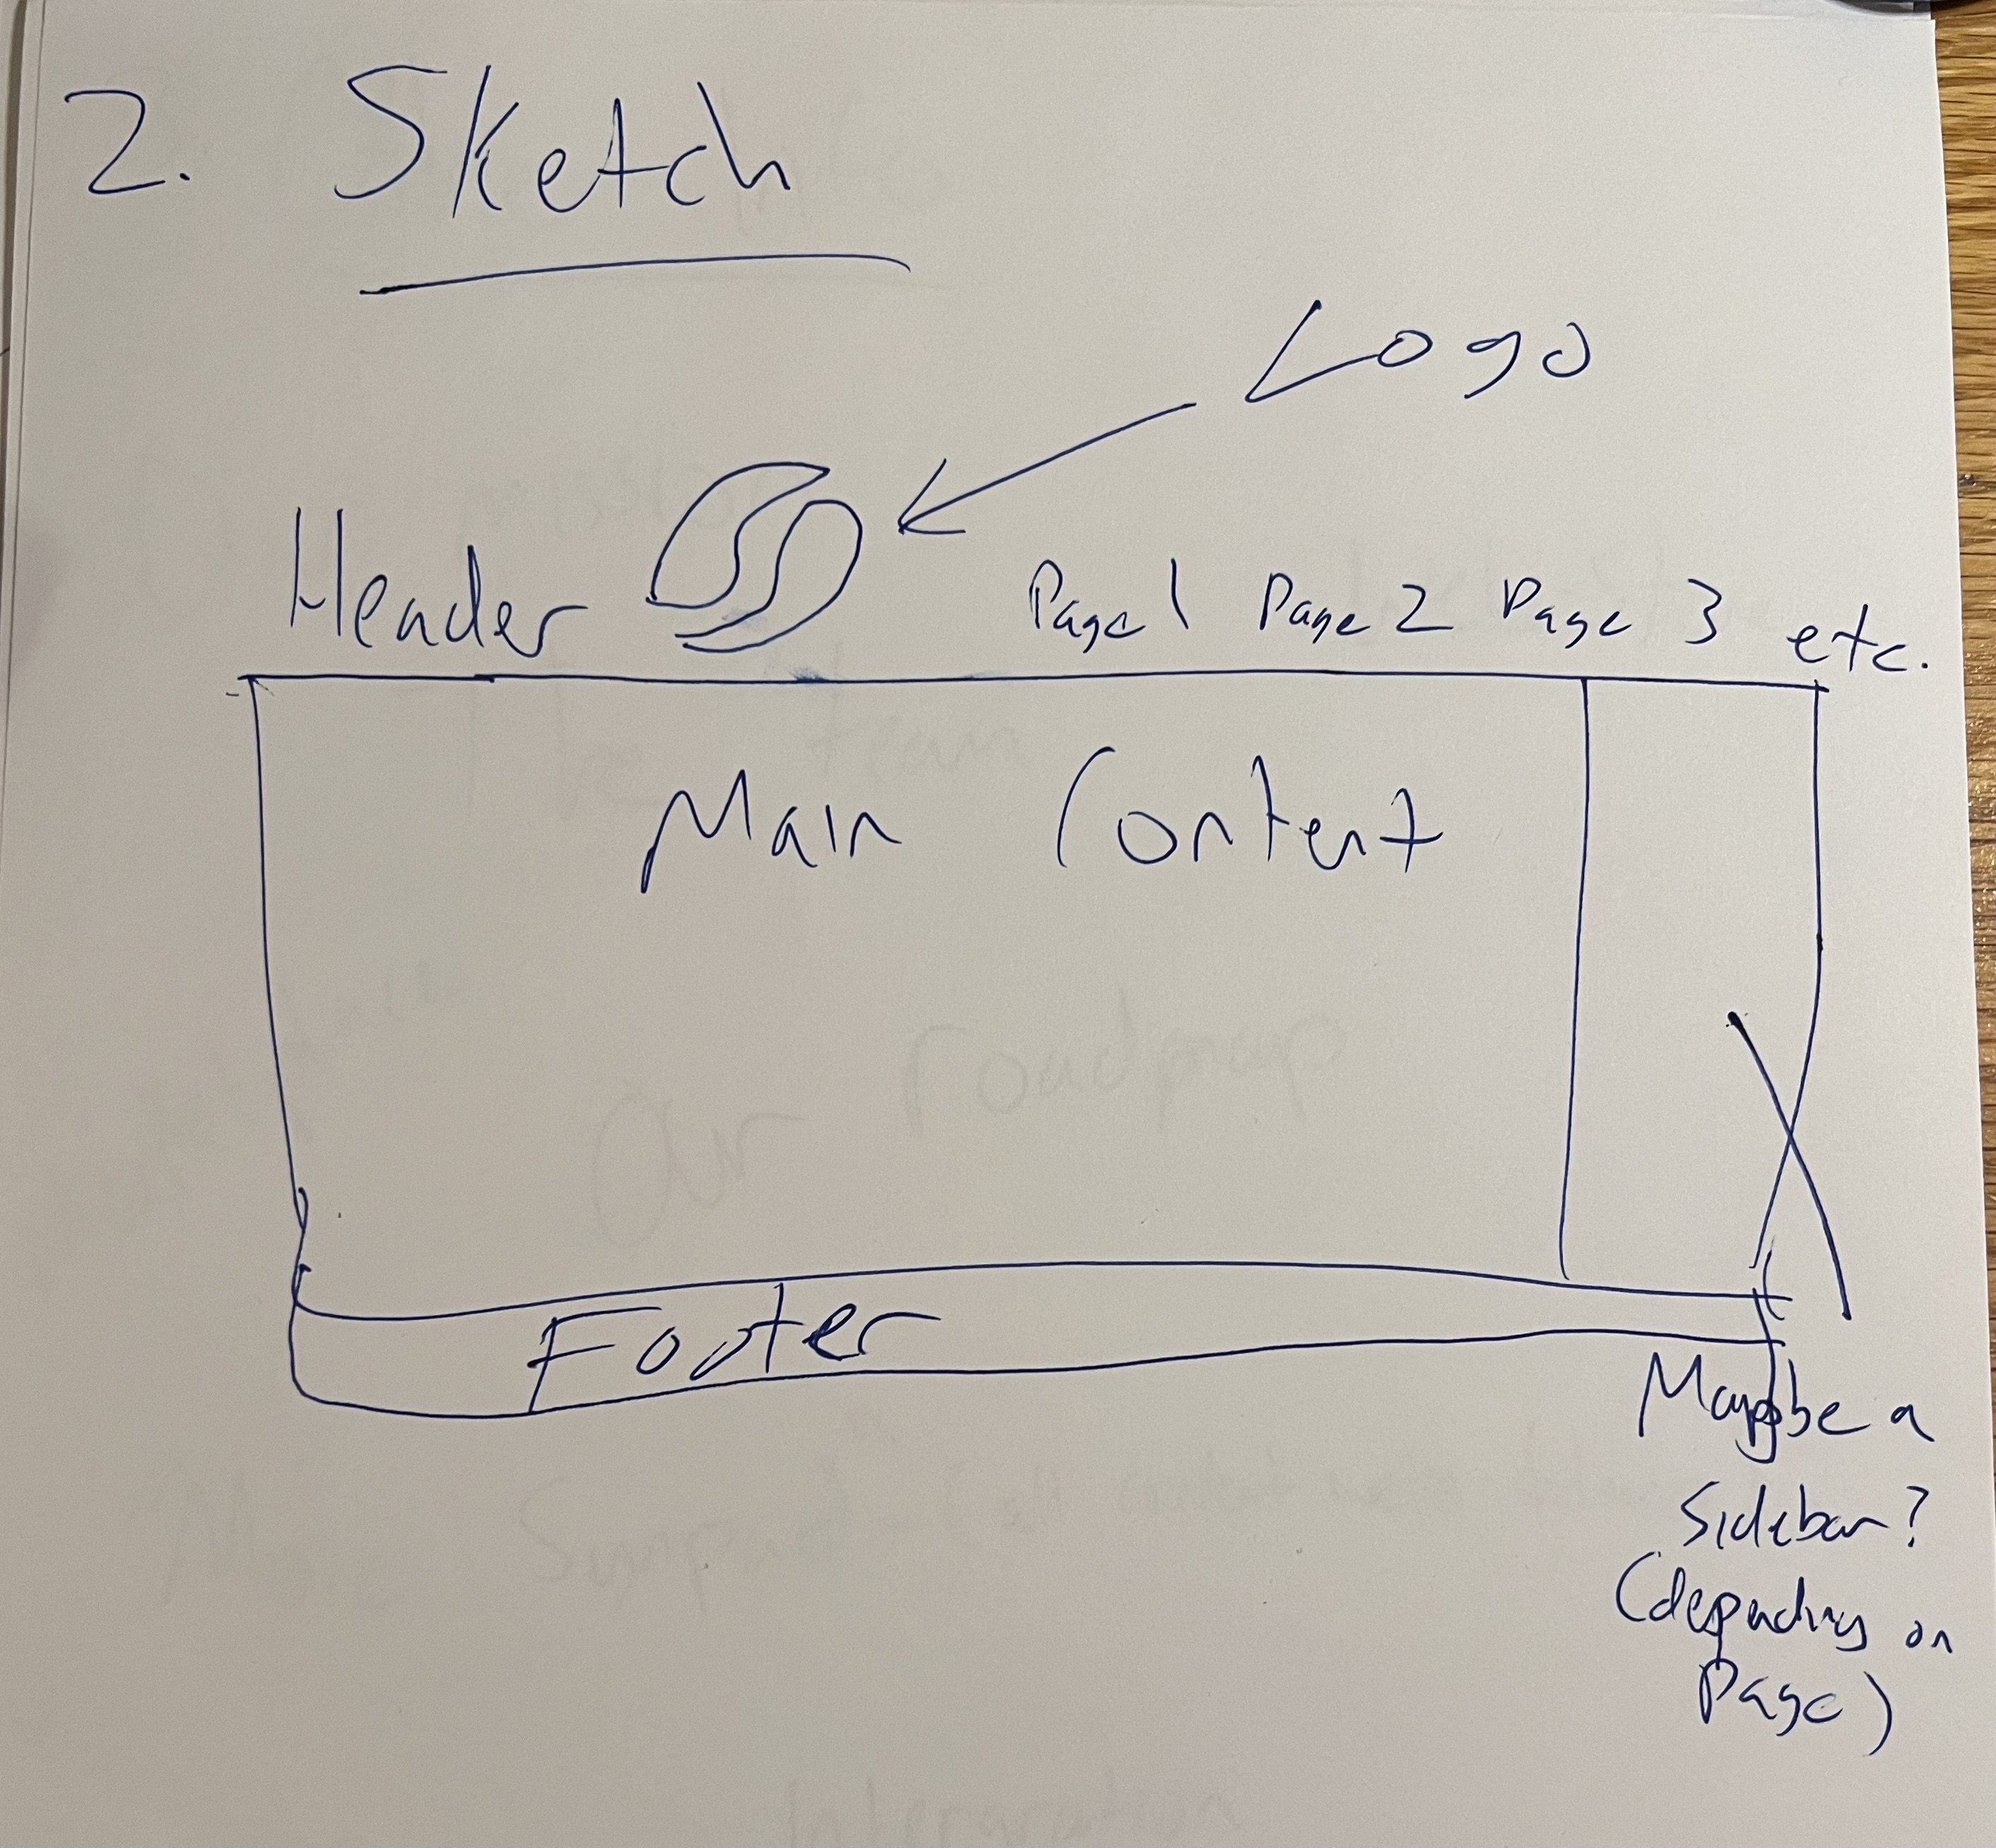 2. Sketch
Logo
Header
Page 1 Page 2 Page 3 etc.
Main Content
Footer
Maybe a
Sidebar?
(depending on
Page)